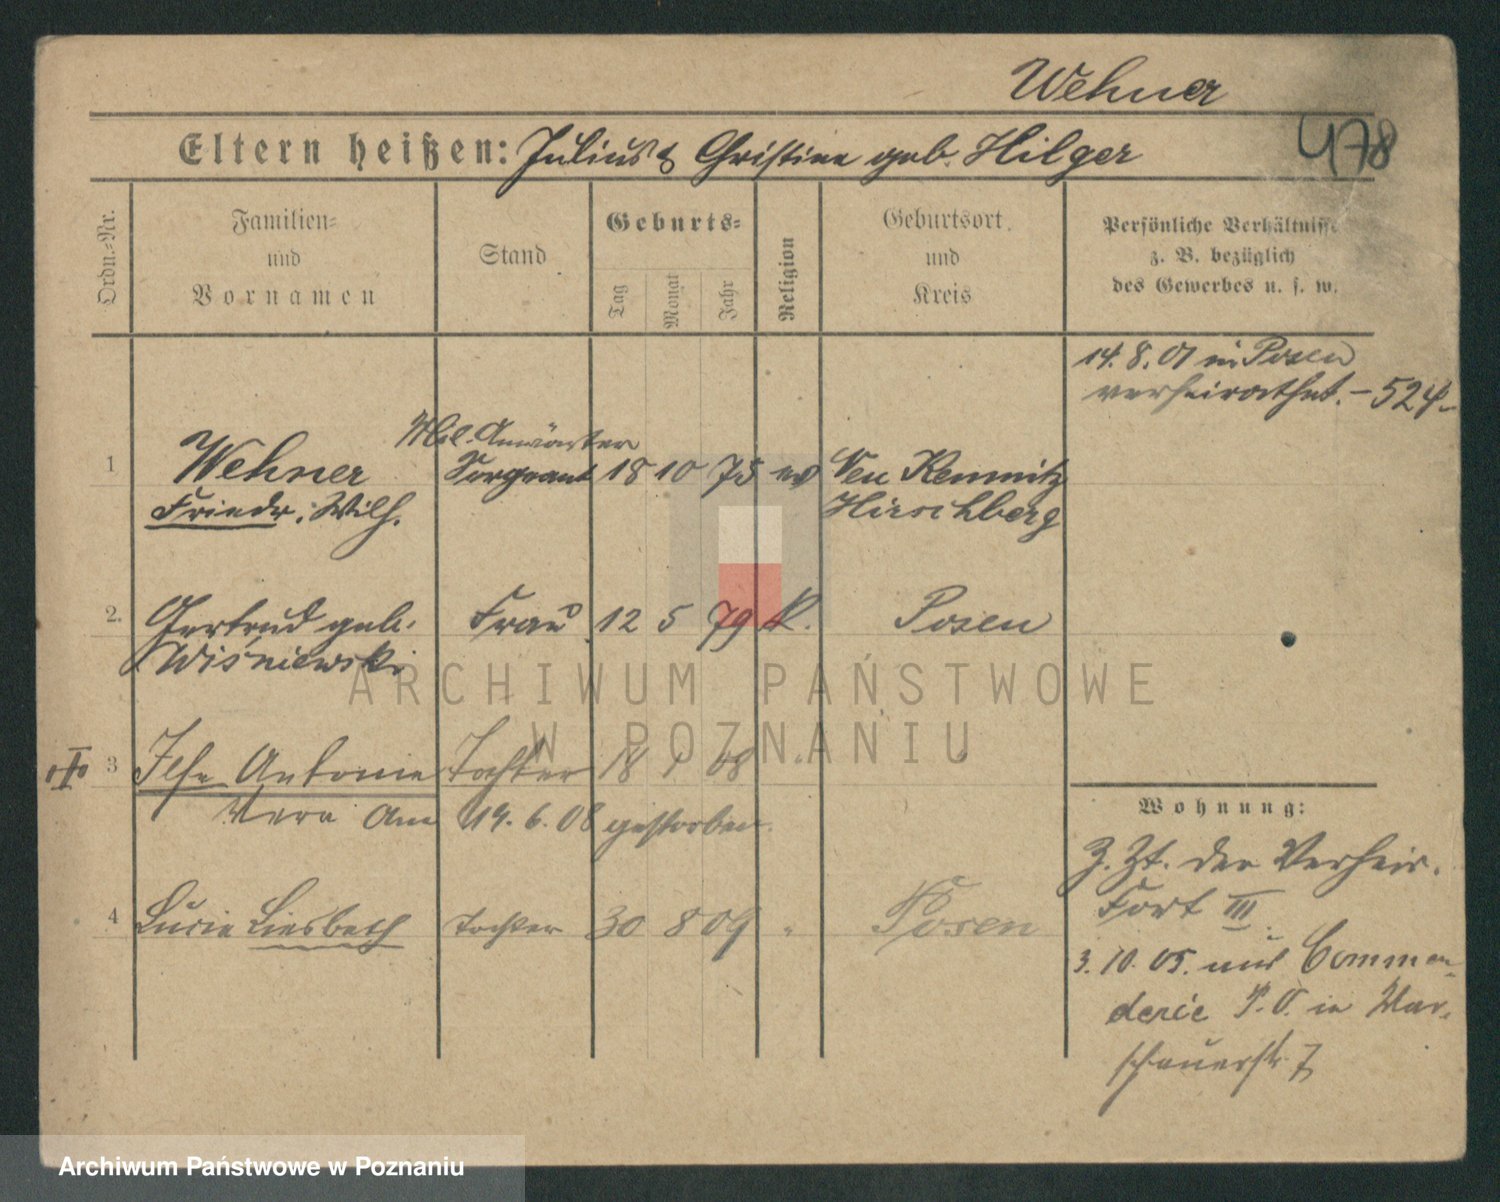 Wehner
478
Eltern heißen: Julius & Christine geb. Hilger
Ordn.-Nr.
Familien-
und
Vornamen
Stand
Geburts-
Tag
Monat
Jahr
Religion
Geburtsort
und
Kreis
Persönliche Verhältnisse
z. B. bezüglich
des Gewerbes u. s. w.
14. 8. 01 in Posen
verheirathet. - 524 -
Mil. Anwärter
1 Wehner Sergeant 18 10 75 ev Neu Kemnitz
Friedr. Wilh. Hirschberg
2. Gertrud geb. Frau 12 5 79 k. Posen
Wiśniewski
3 Ilse Antonie Tochter 18 1 08 "
Vera Am 19. 6. 08 gestorben.
4 Lucie Liesbeth Tochter 30 8 09 " Posen
Wohnung:
Z. Zt. der Verheir.
Fort III
3. 10. 05. aus Comman-
derie P. O. in War-
schauerstr 7
ARCHIWUM PAŃSTWOWE
W POZNANIU
Archiwum Państwowe w Poznaniu